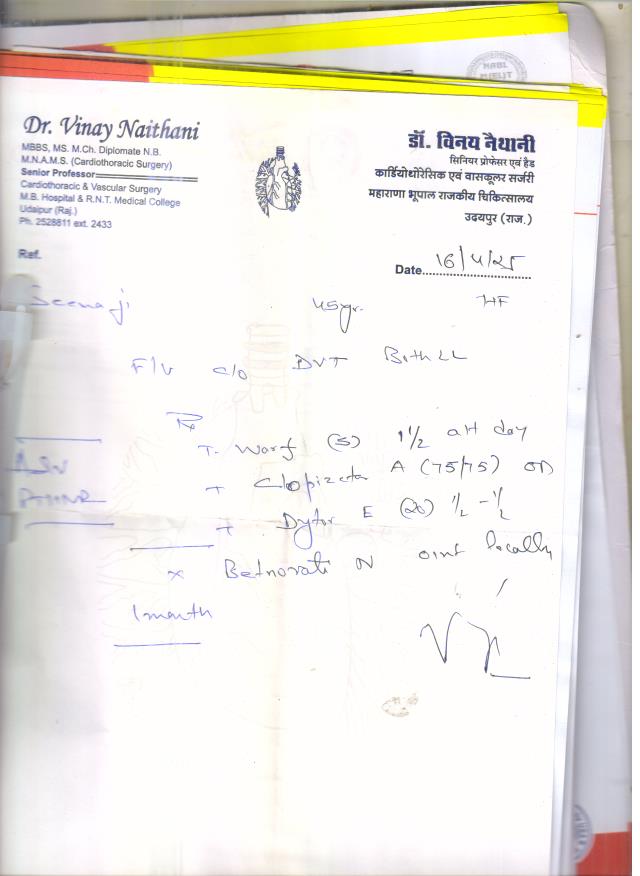 NABL
Dr. Vinay Naithani
MBBS, MS. M.Ch. Diplomate N.B.
M.N.A.M.S. (Cardiothoracic Surgery)
Senior Professor
Cardiothoracic & Vascular Surgery
M.B. Hospital & R.N.T. Medical College
Udaipur (Raj.)
Ph. 2528811 ext. 2433
डॉ. विनय नैथानी
सिनियर प्रोफेसर एवं हैड
कार्डियोथोरेसिक एवं वासकूलर सर्जरी
महाराणा भूपाल राजकीय चिकित्सालय
उदयपुर (राज.)
Ref.
Date 16/4/25
45yr.
F/U c/o DVT Both LL
Rx
T. Warf (5) 1½ alt day
T Clopizeta A (75/75) OD
T Dytor E (20) ½ - ½
x Betnovate N oint locally
1 month